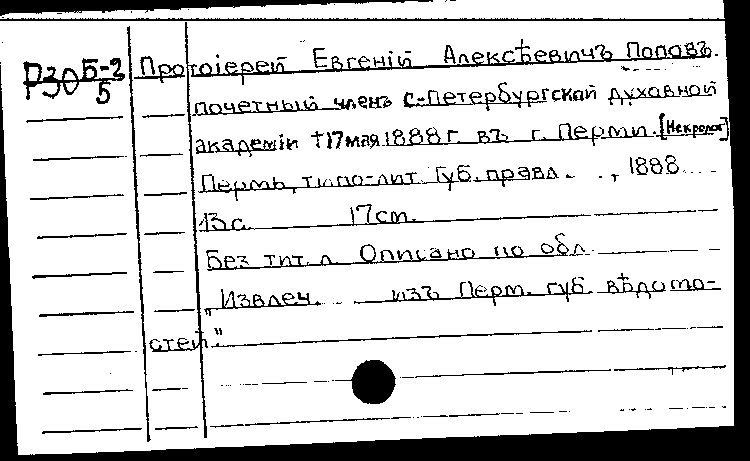 Р30 Б-2/5
Протоіерей Евгеній Алексѣевичъ Поповъ.
почетный членъ С.-Петербургской духовной
академіи †17 мая 1888 г. въ г. Перми. [Некролог]
Пермь, типо-лит. Губ. правл., 1888
13 с. 17 см.
Без тит. л. Описано по обл.
„Извлеч. изъ Перм. губ. вѣдомо-
стей."